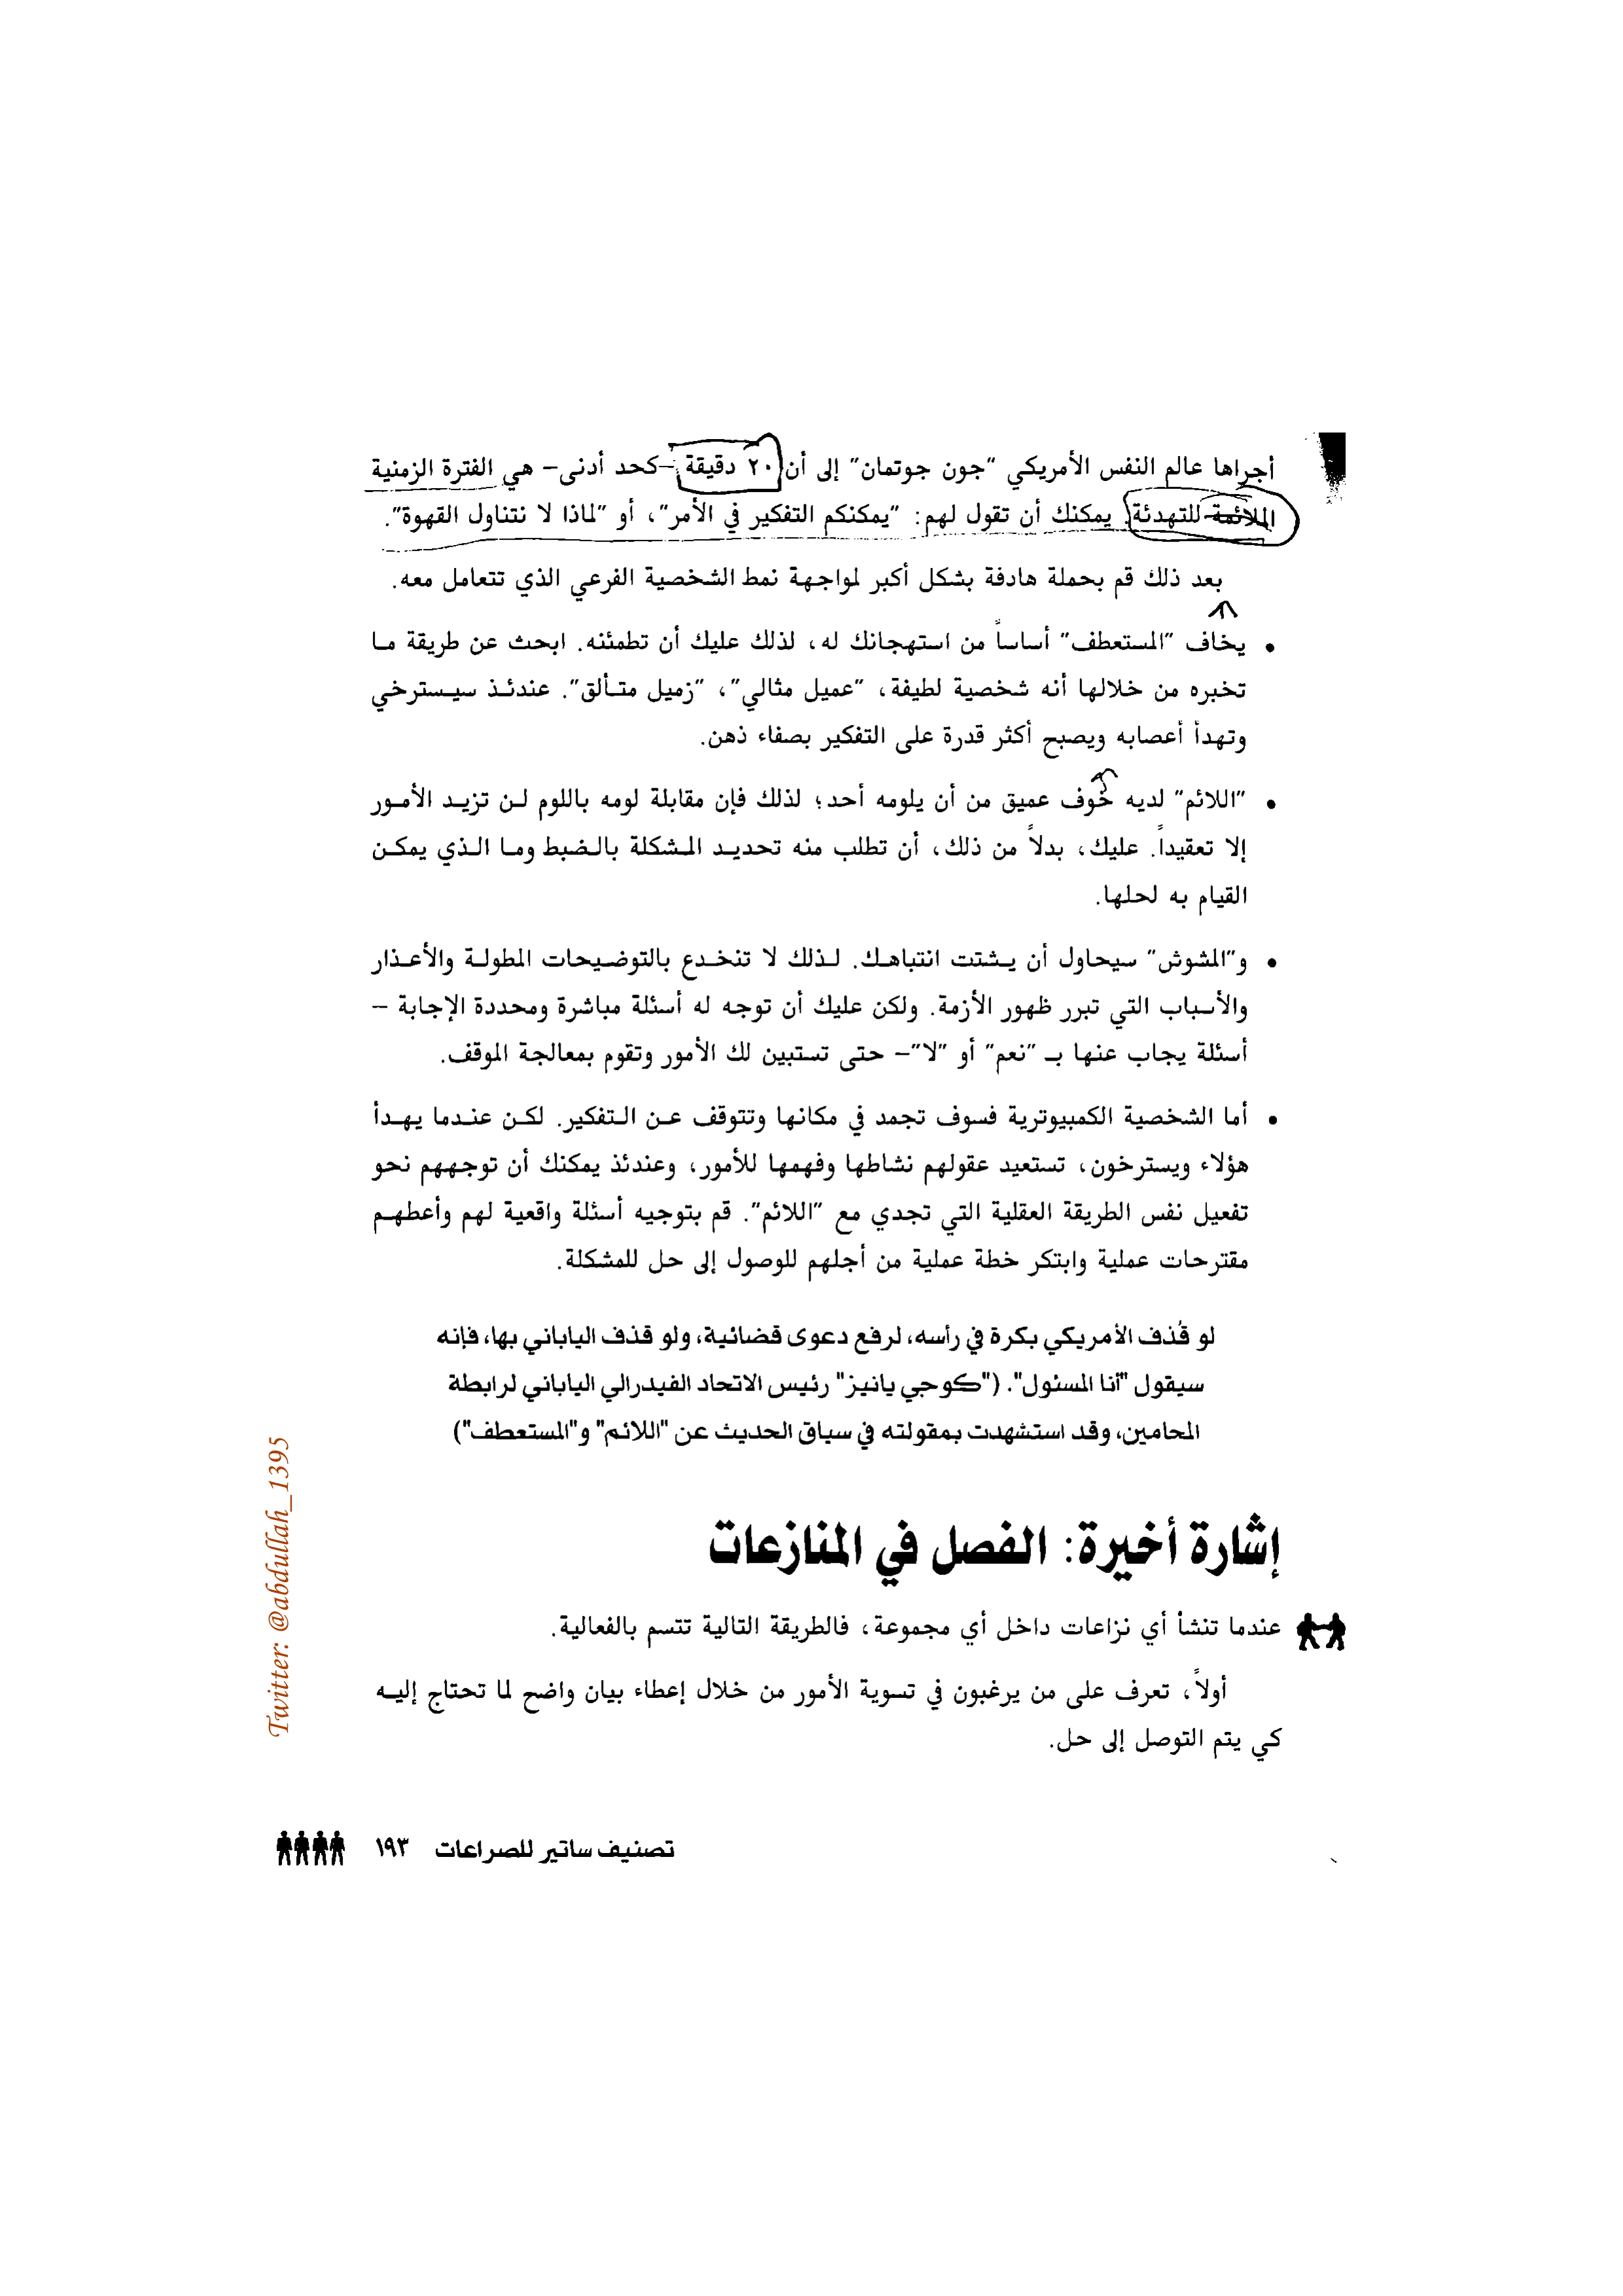 أجراها عالم النفس الأمريكي "جون جوتمان" إلى أن ٢٠ دقيقة -كحد أدنى- هي الفترة الزمنية
الملائمة للتهدئة. يمكنك أن تقول لهم: "يمكنكم التفكير في الأمر"، أو "لماذا لا نتناول القهوة".
بعد ذلك قم بحملة هادفة بشكل أكبر لمواجهة نمط الشخصية الفرعي الذي تتعامل معه.
• يخاف "المستعطف" أساساً من استهجانك له، لذلك عليك أن تطمئنه. ابحث عن طريقة ما
تخبره من خلالها أنه شخصية لطيفة، "عميل مثالي"، "زميل متألق". عندئذ سيسترخي
وتهدأ أعصابه ويصبح أكثر قدرة على التفكير بصفاء ذهن.
• "اللائم" لديه خوف عميق من أن يلومه أحد؛ لذلك فإن مقابلة لومه باللوم لن تزيد الأمور
إلا تعقيداً. عليك، بدلاً من ذلك، أن تطلب منه تحديد المشكلة بالضبط وما الذي يمكن
القيام به لحلها.
• و"المشوش" سيحاول أن يشتت انتباهك. لذلك لا تنخدع بالتوضيحات المطولة والأعذار
والأسباب التي تبرر ظهور الأزمة. ولكن عليك أن توجه له أسئلة مباشرة ومحددة الإجابة –
أسئلة يجاب عنها بـ "نعم" أو "لا"– حتى تستبين لك الأمور وتقوم بمعالجة الموقف.
• أما الشخصية الكمبيوترية فسوف تجمد في مكانها وتتوقف عن التفكير. لكن عندما يهدأ
هؤلاء ويسترخون، تستعيد عقولهم نشاطها وفهمها للأمور، وعندئذ يمكنك أن توجههم نحو
تفعيل نفس الطريقة العقلية التي تجدي مع "اللائم". قم بتوجيه أسئلة واقعية لهم وأعطهم
مقترحات عملية وابتكر خطة عملية من أجلهم للوصول إلى حل للمشكلة.
لو قُذف الأمريكي بكرة في رأسه، لرفع دعوى قضائية، ولو قذف الياباني بها، فإنه
سيقول "أنا المسئول". ("كوجي يانيز" رئيس الاتحاد الفيدرالي الياباني لرابطة
المحامين، وقد استشهدت بمقولته في سياق الحديث عن "اللائم" و"المستعطف")
إشارة أخيرة: الفصل في المنازعات
عندما تنشأ أي نزاعات داخل أي مجموعة، فالطريقة التالية تتسم بالفعالية.
أولاً، تعرف على من يرغبون في تسوية الأمور من خلال إعطاء بيان واضح لما تحتاج إليه
كي يتم التوصل إلى حل.
تصنيف ساتير للصراعات ١٩٣
Twitter: @abdullah_1395